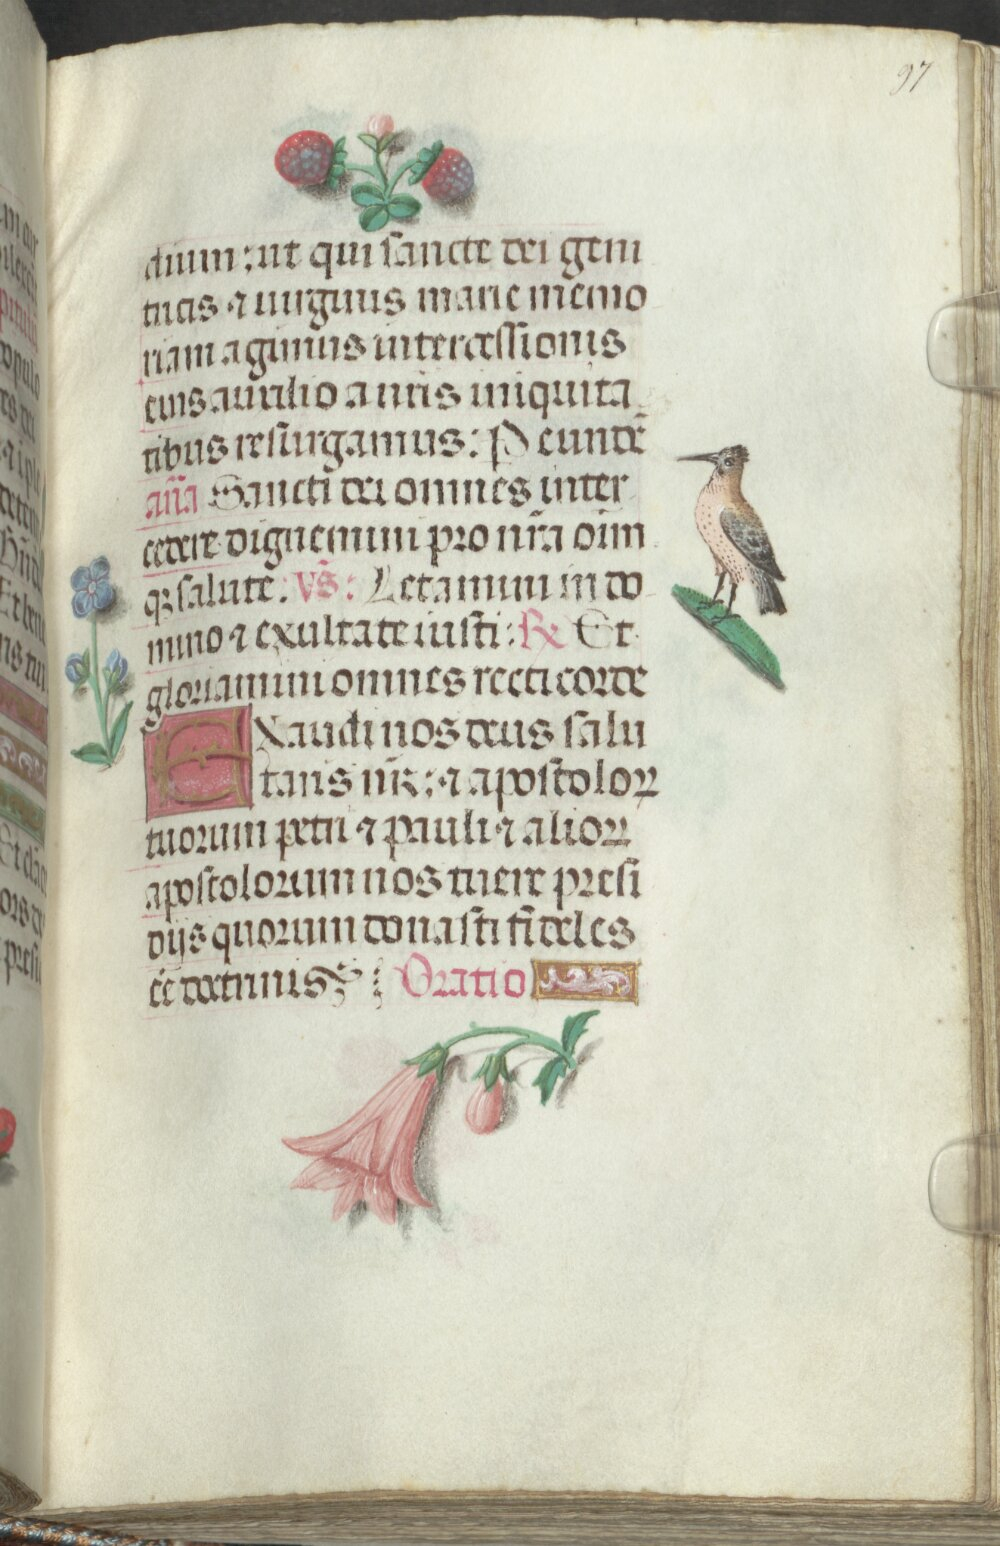 97
dium : ut qui sancte dei geni
tricis ⁊ uirginis marie memo
riam agimus intercessionis
eius auxilio a nr̃is iniquita
tibus resurgamus : P eundẽ
añã Sancti dei omnes inter
cedere dignemini pro nr̃a oim̃
qꝫ salute . Vs̃ : Letamini in do
mino ⁊ exultate iusti : R̃ Et
gloriamini omnes recti corde
EXaudi nos deus salu
taris nr̃ : ⁊ apostoloꝝ
tuorum petri ⁊ pauli ⁊ alioꝝ
apostolorum nos tuere presi
dijs quorum donasti fideles
eẽ doctrinis : Oratio